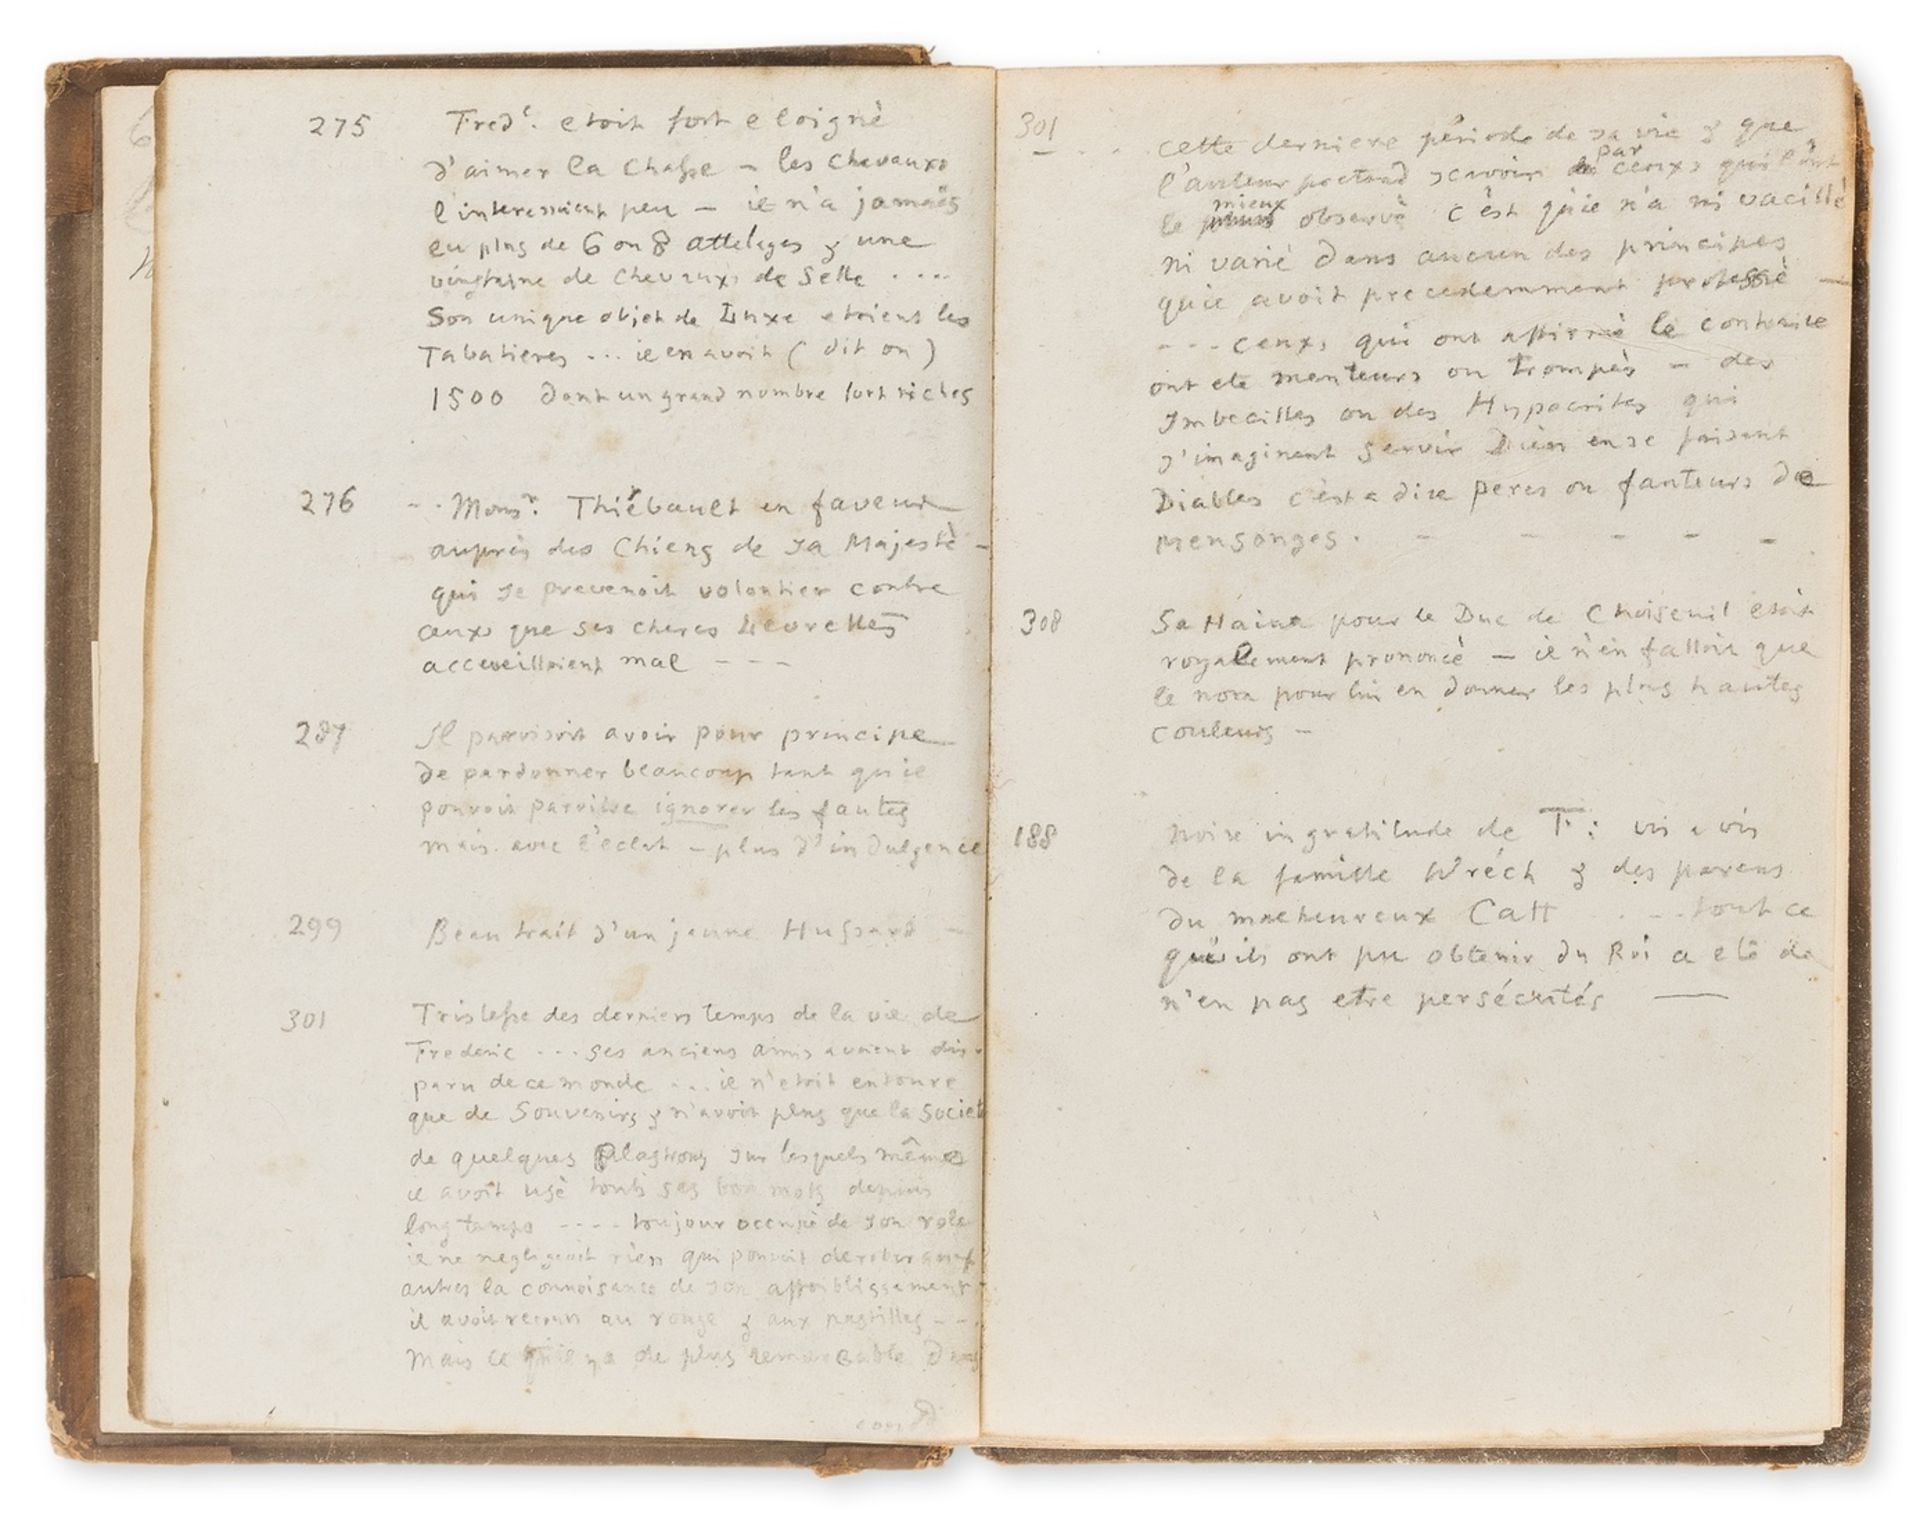 275 Fred^c. etoit fort eloignè
d'aimer la Chasse – les chevaux
l'interessoient peu – il n'a jamais
eu plus de 6 ou 8 attelages & une
vingtaine de chevaux de Selle ....
Son unique objet de Luxe etoient les
Tabatieres ... il en avoit (dit on)
1500 dont un grand nombre fort riches
276 -- Mons^r. Thiébault en faveur
auprès des Chiens de sa Majestè –
qui se prevenoit volontier contre
ceux que ses cheres Levrettes
acceueilloient mal – – –
287 Il paroisoit avoir pour principe
de pardonner beaucoup tant qu'il
pouvoit paroitre ignorer les fautes
mais avec l'eclat – plus d'indulgence
299 Beau trait d'un jeune Hussard –
301 Tristesse des derniers temps de la vie de
Frederic ... ses anciens amis avoient dis-
paru de ce monde ... il n'etoit entoure
que de Souvenirs & n'avoit plus que la Societe
de quelques Plastrons sur lesquels mêmes
il avoit usè touts ses bon mots depuis
long temps ---- toujour occupè de son role
il ne negligeoit rien qui pouvoit derober aux
autres la connoisance de son affoiblissement
il avoit recours au rouge & aux pastilles – –
Mais ce qu'il y a de plus remarcable dans
301 – . . cette derniere période de sa vie & que
l'auteur pretend scavoir par ceux qui l'ont
le mieux observè c'est qu'il n'a ni vacillè
ni varié dans aucun des principes
qu'il avoit precedemment professè –
--- ceux qui ont affirmè le contraire
ont ete menteurs ou trompès – des
Imbecilles ou des Hypocrites qui
s'imaginent servir Dieu en se faisant
Diables c'est a dire peres ou fauteurs de
Mensonges. – – – – –
308 Sa Haine pour le Duc de Choiseuil etoit
royalement prononcè – il n'en falloit que
le nom pour lui en donner les plus hautes
couleurs –
188 Noire ingratitude de F: vis a vis
de la famille Wréch & des parens
du malheureux Catt ... tout ce
qu'ils ont pu obtenir du Roi a eté de
n'en pas etre persécutés —